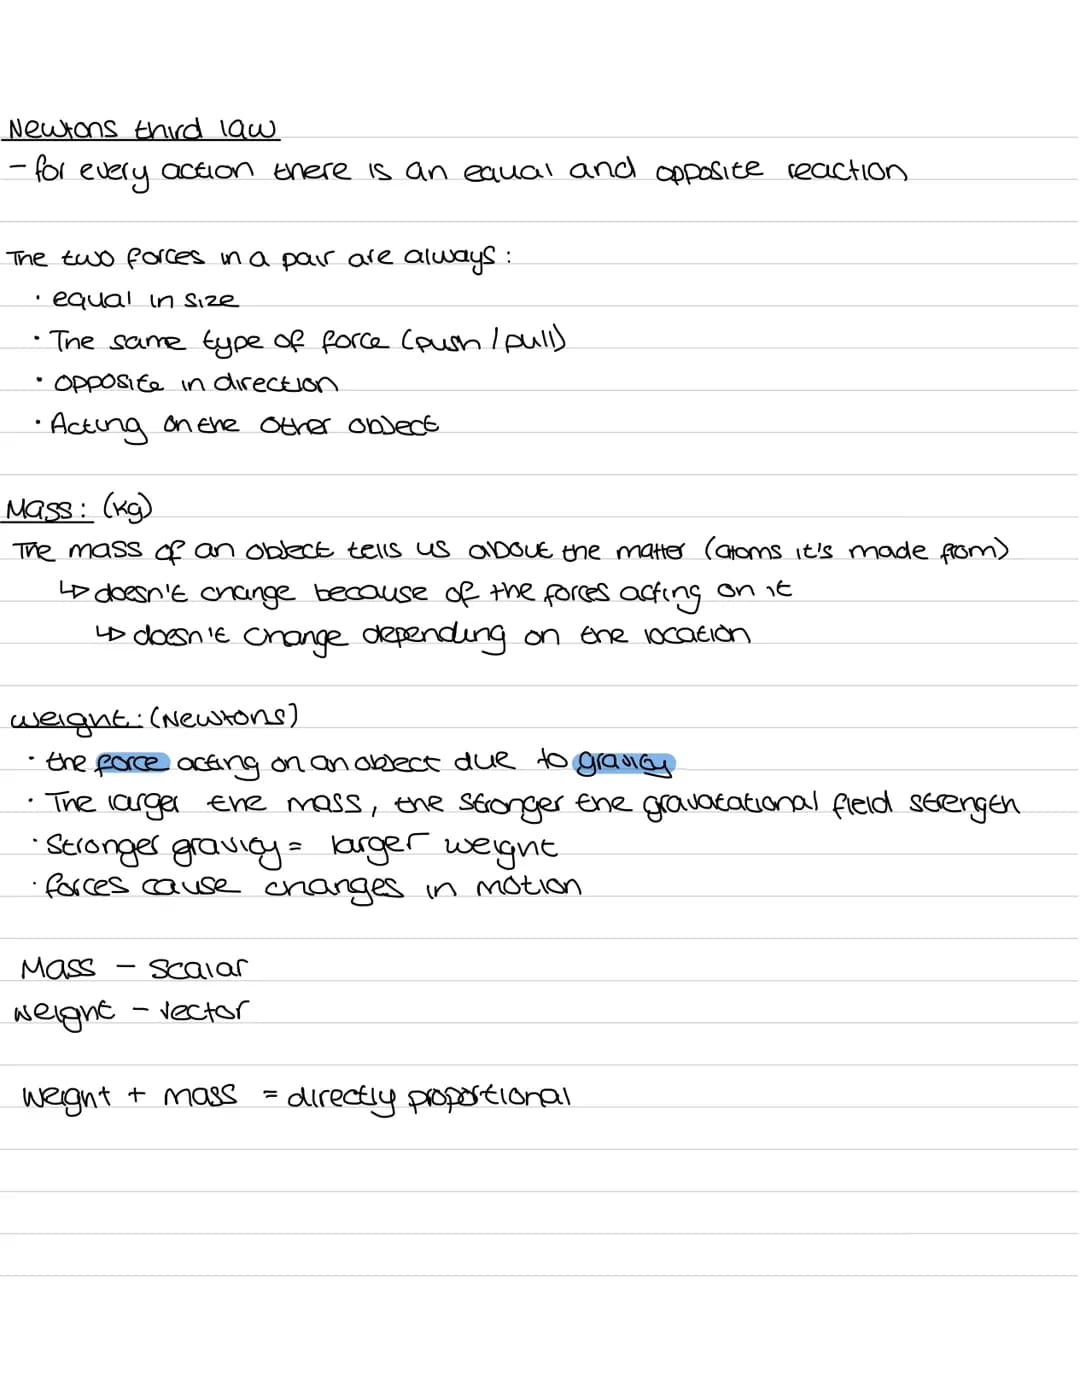 Newtons third law
- for every action there is an equal and opposite reaction
The two forces in a pair are always:
• equal in size
• The same type of force (push / pull)
• opposite in direction
• Acting on the other object
Mass: (kg)
The mass of an object tells us about the matter (atoms it's made from)
↳ doesn't change because of the forces acting on it
↳ doesn't change depending on the location
weight: (Newtons)
• the force acting on an object due to gravity
• The larger the mass, the stronger the gravatational field strength
• Stronger gravity = larger weight
• forces cause changes in motion
Mass - scalar
weight - vector
weight + mass = directly proportional